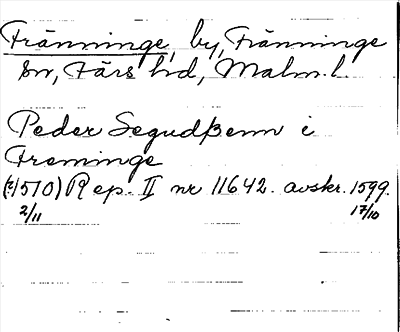 Fränninge, by, Fränninge
sn, Färs hd, Malm. l.
Peder Segudßenn i
Freninge
(?1510) Rep. II nr 11642. avskr. 1599.
2/11 17/10